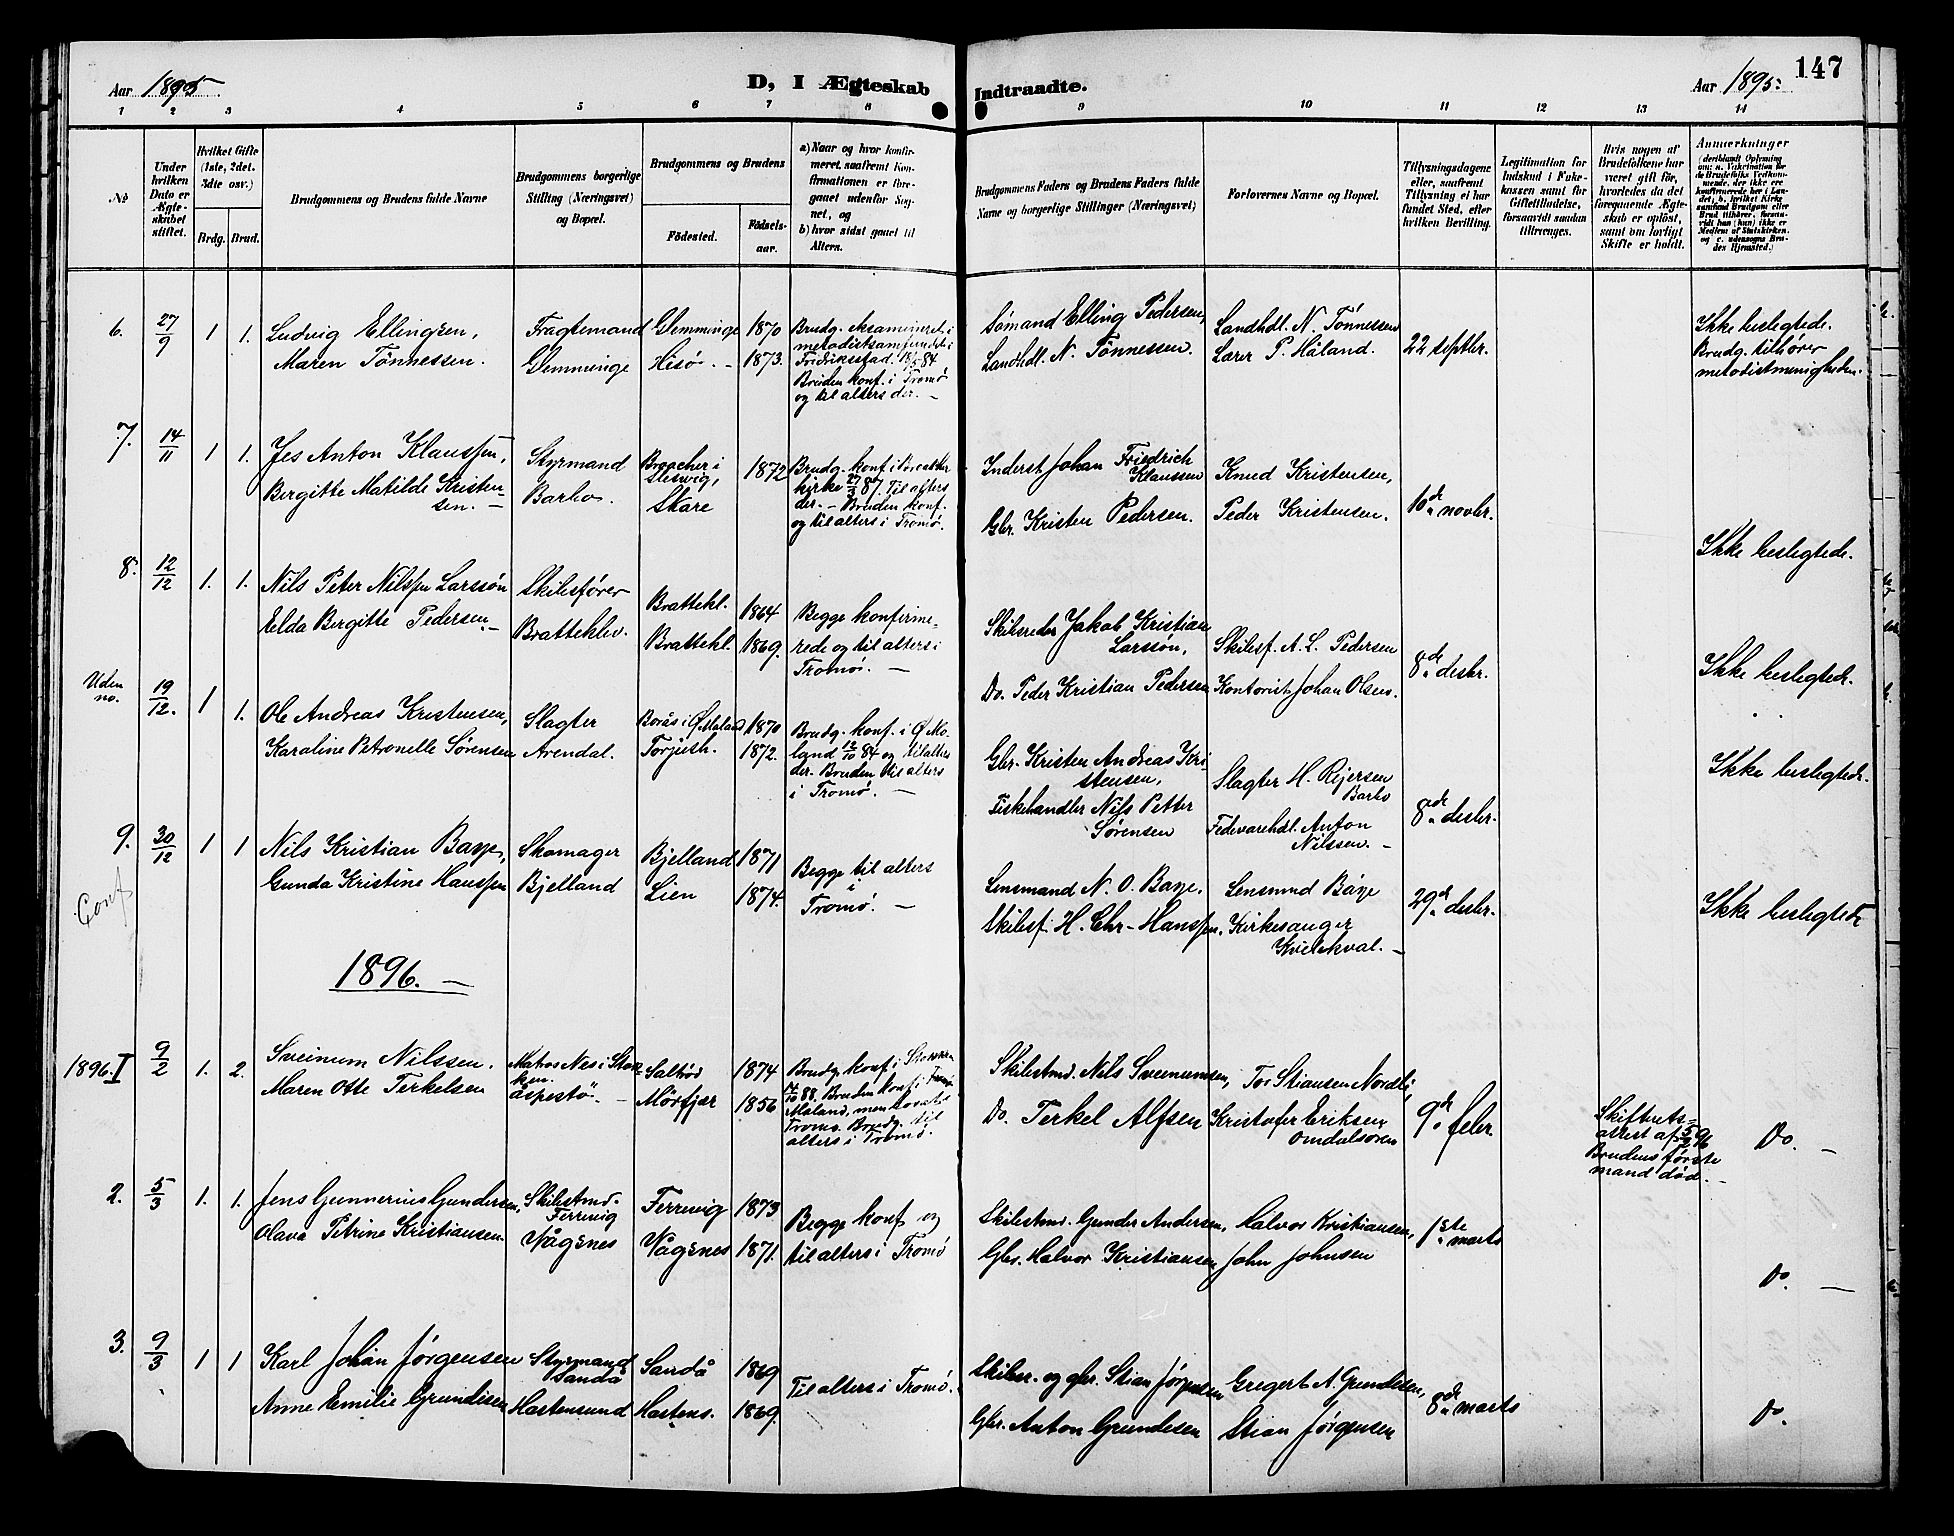 Aar 1895. D, I Ægteskab Indtraadte. Aar 1895. 147
1 2 3 4 5 6 7 8 9 10 11 12 13 14
No
Under hvilken Dato er Ægteskabet stiftet.
Hvilket Gifte (1ste, 2det, 3dte osv.)
Brdg. Brud.
Brudgommens og Brudens fulde Navne
Brudgommens borgerlige Stilling (Næringsvei) og Bopæl.
Brudgommens og Brudens
Födested. Födselsaar.
a) Naar og hvor konfirmeret, saafremt Konfirmationen er foregaaet udenfor Sognet, og
b) hvor sidst gaaet til Alters.
Brudgommens Faders og Brudens Faders fulde Navne og borgerlige Stillinger (Næringsvei)
Forlovernes Navne og Bopæl.
Tillysningsdagene eller, saafremt Tillysning ei har fundet Sted, efter hvilken Bevilling.
Legitimation for Indskud i Enkekassen samt for Giftetilladelse, forsaavidt saadan tiltrænges.
Hvis nogen af Brudefolkene har været gift för, hvorledes da det foregaaende Ægteskab er oplöst, samt om lovligt Skifte er holdt.
Anmerkninger
6. 27/9 1 1. Ludvig Ellingsen,
Maren Tønnessen.
Fragtemand
Glemminge
Glemminge 1870
Hisø. - 1873.
Brudg. eksamineret i
metodistsamfundet i
Fredriksstad. 18/5 84
Bruden konf. i Tromø
og til alters der. -
Sømand Elling Pedersen,
Landhdl. N. Tønnessen.
Landhdl. N. Tønnessen
Lærer P. Håland.
22 septbr.
Ikke beslegtede.
Brudg. tilhører
metodistmenigheden.
7. 14/11 1 1. Jes Anton Klaussen,
Bergitte Matilde Kristen-
sen. -
Styrmand
Barbo.
Slesvig,
Skare
1872
kirke 27/3 87. Til alters
der. - Bruden konf.
og til alters i Tromø.
Inderst Johan Friedrich
Klaussen
Gbr. Kristen Pedersen.
Knud Kristensen,
Peder Kristensen.
10de novbr.
Ikke beslegtede.
8. 12/12 1. 1. Nils Peter Nilssen Larssøn
Elda Bergitte Pedersen. -
Skibsfører
Bratteklev.
Brattekl. 1864
Brattekl. 1869.
Begge konfirme-
rede og til alters i
Tromø. -
Skibsreder Jakob Kristian
Larssøn,
Do. Peder Kristian Pedersen
Skibsf. A. L. Pedersen
Kontorist Johan Olsen.
8de desbr.
Ikke beslegtede.
Uden
no. 19/12. 1 1. Ole Andreas Kristensen,
Karaline Petronelle Sørensen
Slagter
Arendal.
Borås i Ø. Moland 1870
Torjush. 1872.
Brudg. konf. i Ø. Mo-
land 12/10 84 og til alters
der. Bruden til alters
i Tromø. -
Gbr. Kristen Andreas Kri-
stensen,
Fiskehandler Nils Petter
Sørensen
Slagter H. Reiersen
Barbo
Fedevarehdl. Anton
Nilssen. -
8de desbr.
Ikke beslegtede.
9. 30/12 1 1 Nils Kristian Baye,
Gunda Kristine Hanssen
Skomager
Bjelland
Bjelland 1871
Lien 1874.
Begge til alters
i
Tromø. -
Lensmand N. O. Baye.
Skibsf. H. Chr. Hanssen.
Lensmand Baye
Kirkesanger
29de desbr.
Ikke beslegtede
Conf
1896. -
1896. I 9/2 1. 2. Sveinum Nilssen.
Maren Otte Terkelsen
Matros Nes i Stok-
ken.
Saltrød 1874
Mörfjær 1856
Brudg. konf. i Stokken
88. Bruden konf. i
Moland, men
Tromø. Brudg. til
alters i Tromø.
Skibstmd. Nils Sveinumsen,
Do. Terkel Alfsen
Tor Stiansen Nordli,
Kristofer Eriksen
Omdalsøren
9de febr.
Skifterets-
attest af 5/2 96
Brudens første
mand død. -
Do. -
2. 5/3 1. 1. Jens Gunnerius Gundersen,
Olava Petrine Kristiansen
Skibstmd.
Færvig
Vågsnes
Færvig 1873
Vågsnes 1871.
Begge konf. og
til alters i Tromø
Skibstmd. Gunder Andersen,
Gbr. Halvor Kristiansen
Halvor Kristiansen,
John Johnsen
1ste marts
Do. -
3. 9/3 1 1 Karl Johan Jørgensen
Anne Emilie Grundesen
Styrmand
Sandå
Hastensund
Sandå 1869
Hastens. 1869.
Til alters i Tromø.
Skibsr. og gbr. Stian Jørgensen
Gbr. Anton Grundesen
Gregert A. Grundesen,
Stian Jørgensen
8de marts
Do.